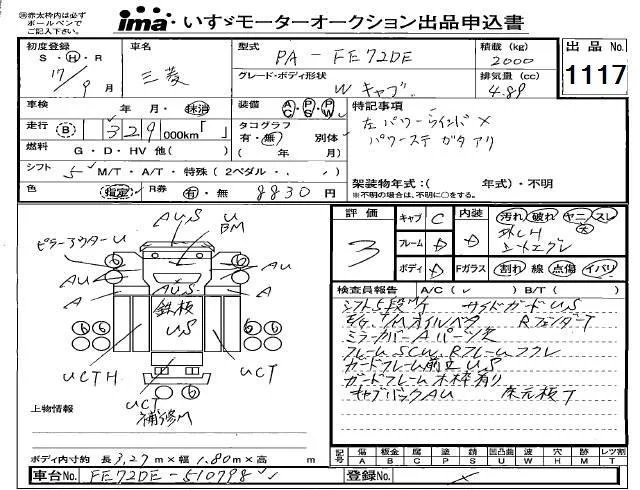 ㊟赤太枠内は必ず
ボールペンで
ご記入下さい。
ima・いすゞモーターオークション出品申込書
初度登録 車名 型式 積載(kg) 出品No.
S・H・R 三菱 PA-FE72DE 2000 1117
17 9月 グレード・ボディ形状 排気量(cc)
Wキャブ 4.89
車検 年 月・抹消 装備 A/C P/S P/W 特記事項
走行 B 329 000km「 」 タコグラフ 有・無 別体 左パワーウインド×
燃料 G・D・HV 他( ) ( 年 月) パワステ ガタアリ
シフト 5 M/T・A/T・特殊(2ペダル・ . . ) 架装物年式:( 年式)・不明
色 指定 R券 有・無 8830円 ※不明の場合は、不明に〇をする。
評価 3
キャブ C 内装 D 汚れ 破れ ヤニ スレ 大
フレーム D
ボディ D Fガラス 割れ 線 点傷 イバリ
検査員報告 A/C( ✓ ) B/T( )
シフト5段M/T サイドガードUS
E/G, T/Mオイル
RフェンダーT
ミラーカバーA
フレームSCW, Rフレーム
ガードフレーム US
ガードフレーム木枠有り
キャブバックAU 床元板T
AUS U
BM
ピラーアウターU
AU AU
A A
AUS
鉄板
US
⑥ ⑥ ⑥ ⑥ ⑥ ⑥
UCTH UCT
UCT
補修M
上物情報
ボディ内寸約 長3,27m×幅1.80m×高 m
記号 傷 板金 腐 塗 錆 凹凸曲 波 穴 跡 レツ割
A B C P S U W H M T
車台No. FE72DE-510798 登録No. ×